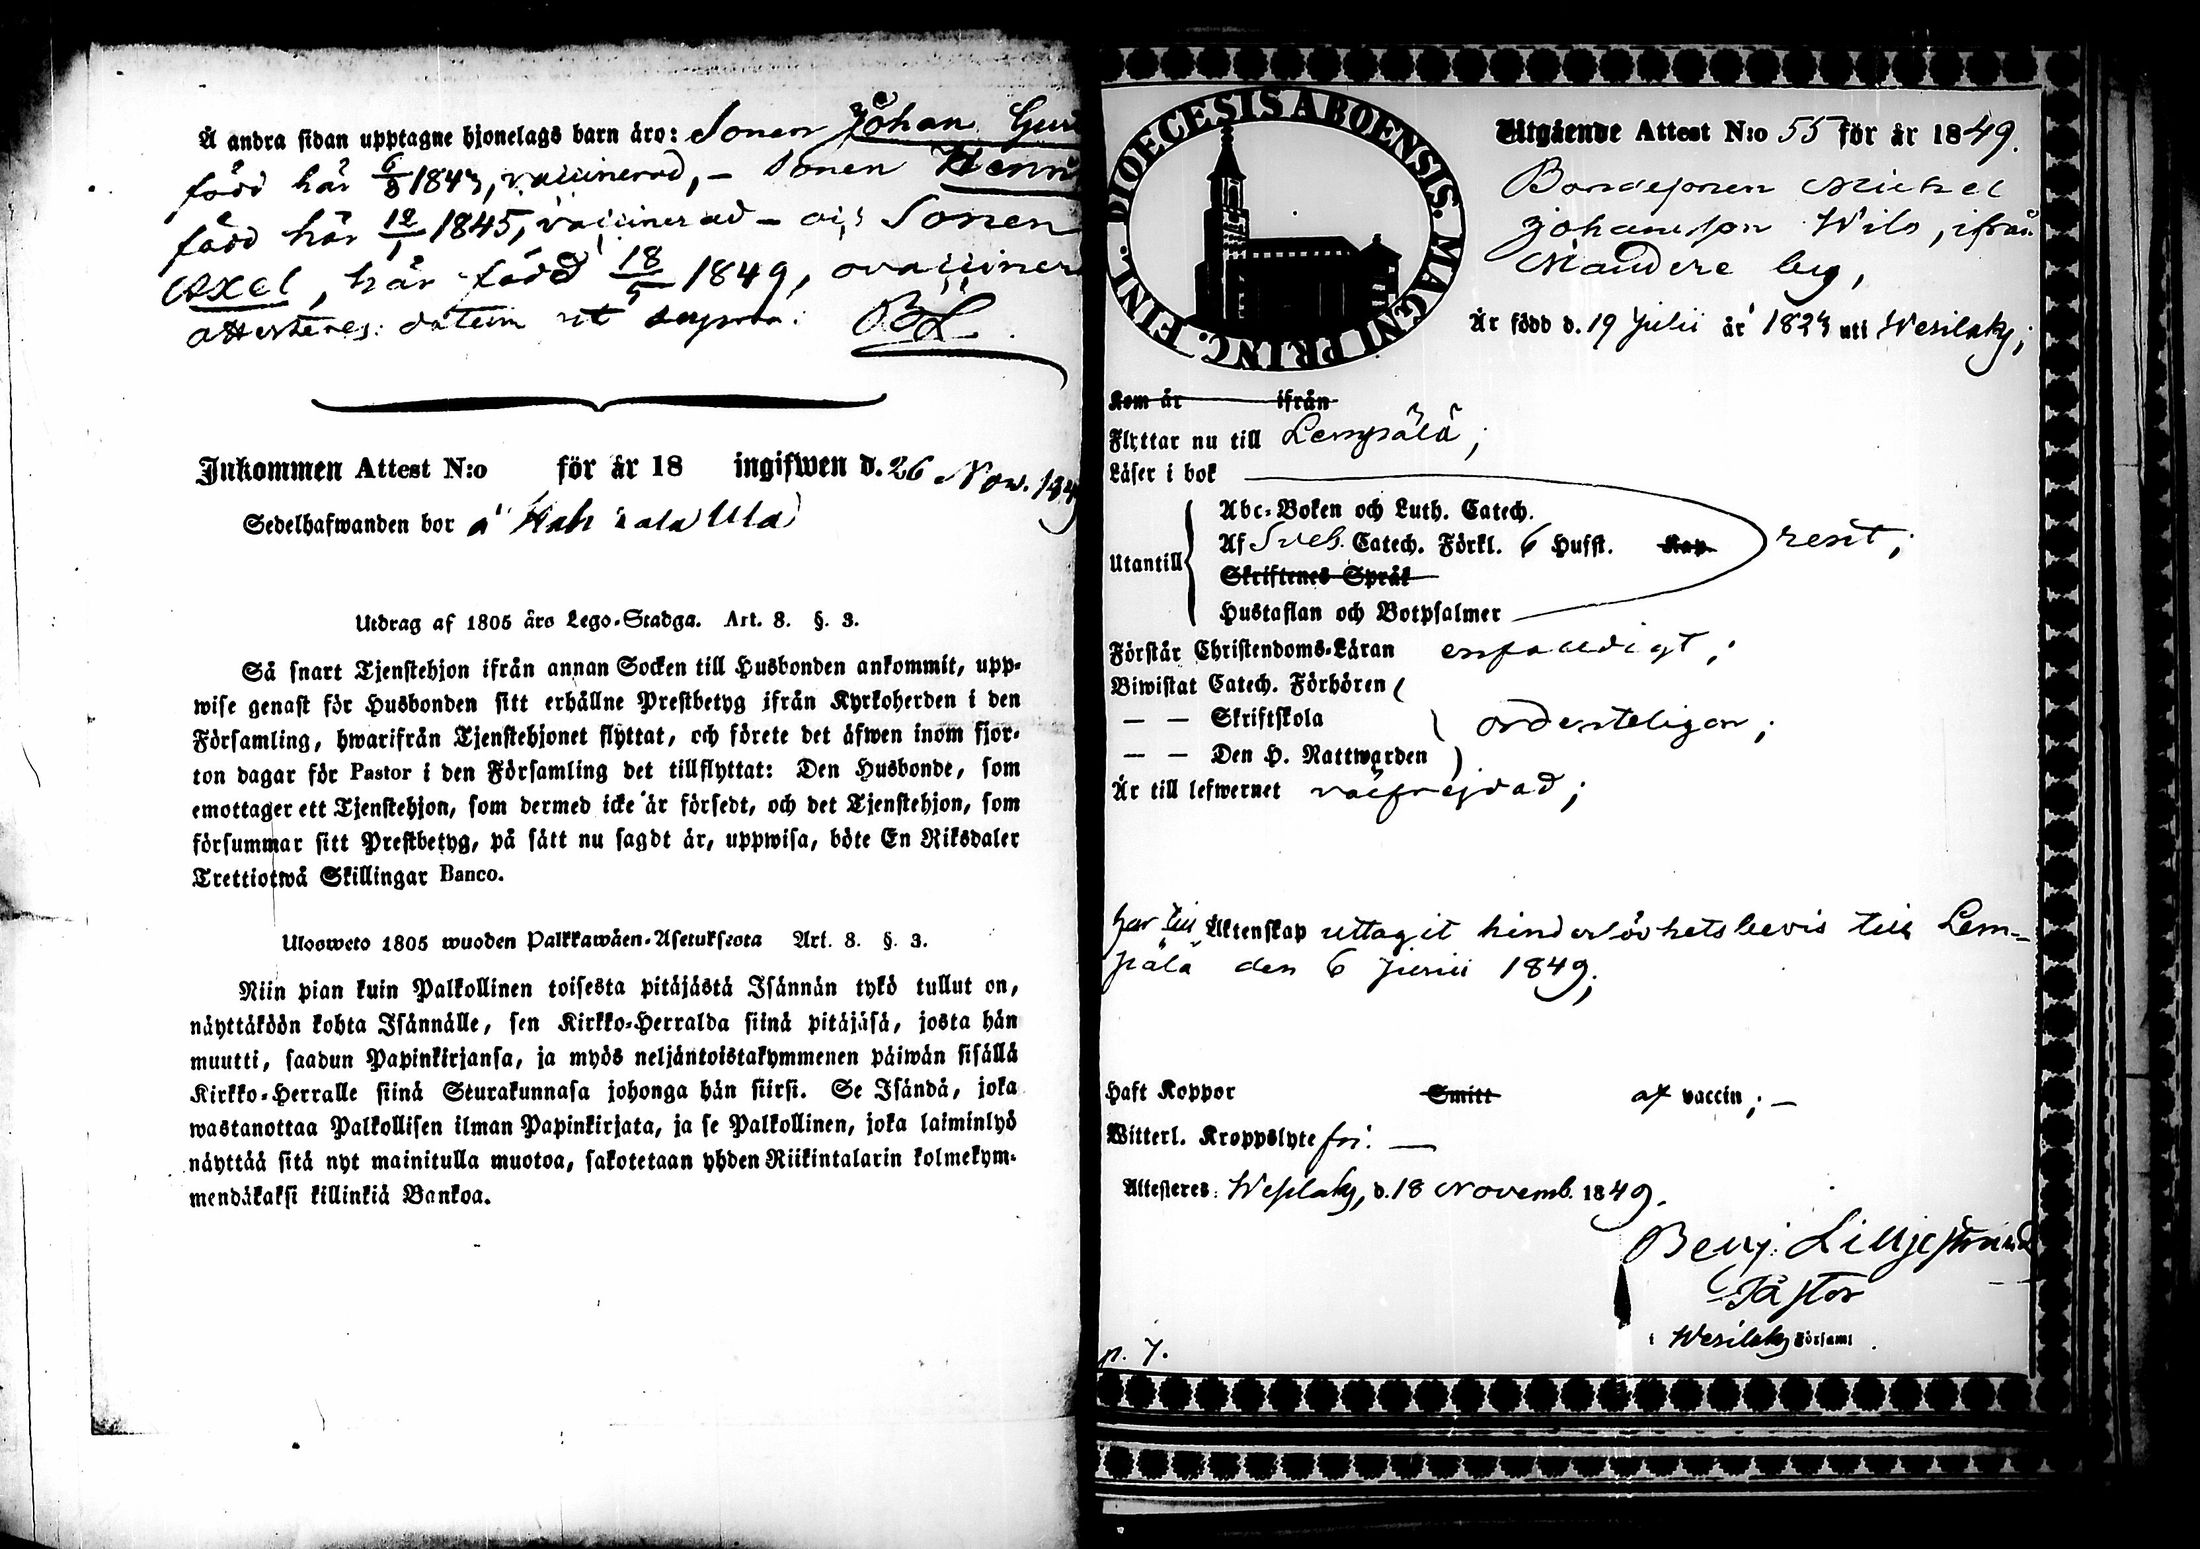 Å andra sidan upptagne hjonelags barn äro: Sonen Johan
född här 6/3 1843, vaccinerad, – Sonen
född här 12/1 1845, vaccinerad – och Sonen
Axel, här född 18/5 1849, ovacciner
attesteres: datum ut supra. BL
Inkommen Attest N:o för år 18 ingifwen d. 26 Nov. 1849
Sedelhafwanden bor å
Utdrag af 1805 års Lego-Stadga. Art. 8. §. 3.
Så snart Tjenstehjon ifrån annan Socken till Husbonden ankommit, upp-
wise genast för Husbonden sitt erhållne Prestbetyg ifrån Kyrkoherden i den
Församling, hwarifrån Tjenstehjonet flyttat, och förete det äfwen inom fjor-
ton dagar för Pastor i den Församling det tillflyttat: Den Husbonde, som
emottager ett Tjenstehjon, som dermed icke är försedt, och det Tjenstehjon, som
försummar sitt Prestbetyg, på sätt nu sagdt är, uppwisa, böte En Riksdaler
Trettiotwå Skillingar Banco.
Ulosweto 1805 wuoden Palkkawäen-Asetuksesta Art. 8. §. 3.
Niin pian kuin Palkollinen toisesta pitäjästä Isännän tykö tullut on,
näyttäköön kohta Isännälle, sen Kirkko-Herralda siinä pitäjäsä, josta hän
muutti, saadun Papinkirjansa, ja myös neljäntoistakymmenen päiwän sisällä
Kirkko-Herralle siinä Seurakunnasa johonga hän siirsi. Se Isändä, joka
wastanottaa Palkollisen ilman Papinkirjata, ja se Palkollinen, joka laiminlyö
näyttää sitä nyt mainitulla muotoa, sakotetaan yhden Riikintalarin kolmekym-
mendäkaksi killinkiä Bankoa.
DIOECESIS ABOENSIS. MAGNI PRINC. FINL.
Utgående Attest N:o 55 för år 1849.
Bondesonen Michel
Johansson Wils, ifrån
by,
Är född d. 19 Julii år 1823 uti Wesilaks;
Kom år ifrån
Flyttar nu till Lempälä;
Läser i bok
Abc-Boken och Luth. Catech.
Utantill Af Sveb. Catech. Förkl. 6 Hufst. Kap. rent;
Skriftenes Språk
Hustaflan och Botpsalmer
Förstår Christendoms-Läran enfaldigt;
Biwistat Catech. Förhören
— — Skriftskola ordenteligen;
— — Den H. Nattwarden
Är till lefwernet välfrejdad;
har till Äktenskap uttagit hinderlöshetsbevis till Lem-
pälä den 6 Junii 1849;
Haft Koppor Smitt af vaccin; —
Witterl. Kroppslyte fri. —
Attesteres: Wesilaks, d. 18 Novemb. 1849.
Benj. Lilljestrand
Pastor
i Wesilaks Församl.
p. 7.